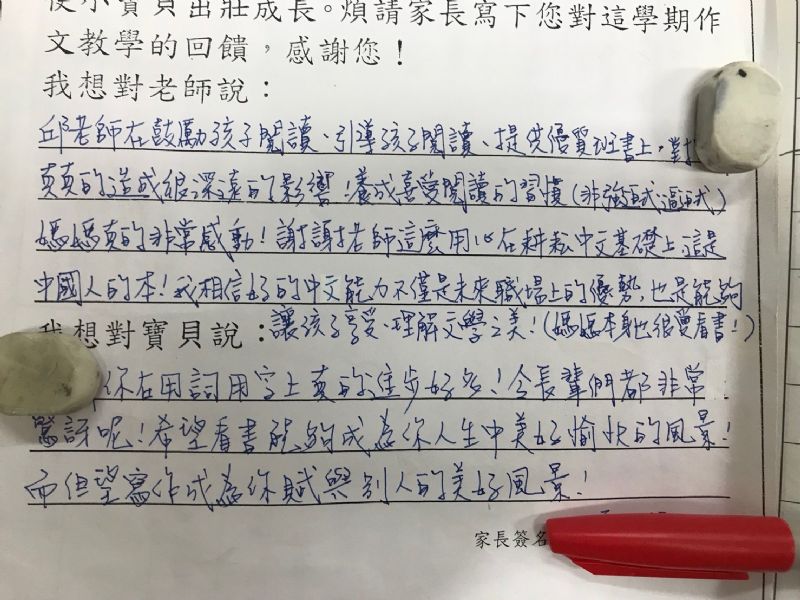 使小寶貝茁壯成長。煩請家長寫下您對這學期作
文教學的回饋，感謝您！
我想對老師說：
邱老師在鼓勵孩子閱讀、引導孩子閱讀、提供優質班書上，對
真真的造成很深遠的影響！養成喜愛閱讀的習慣（非強迫式逼迫式）
媽媽真的非常感動！謝謝老師這麼用心在耕耘中文基礎上，這是
中國人的本！我相信好的中文能力不僅是未來職場上的優勢，也是能夠
讓孩子享受、理解文學之美！（媽媽本身也很愛看書！）
我想對寶貝說：
你在用詞用字上真的進步好多！令長輩們都非常
驚訝呢！希望看書能夠成為你人生中美好愉快的風景！
而但望寫作成為你賦與別人的美好風景！
家長簽名